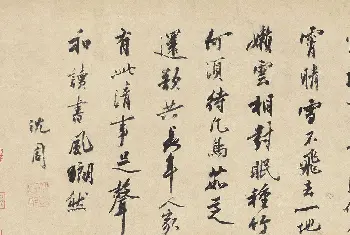 霄晴雪不飛去一地
嫩雲相對眠種竹
何須待凡馬茹芝
還欲共長年人家
有此清事足聲
和讀書風瑚然
沈周